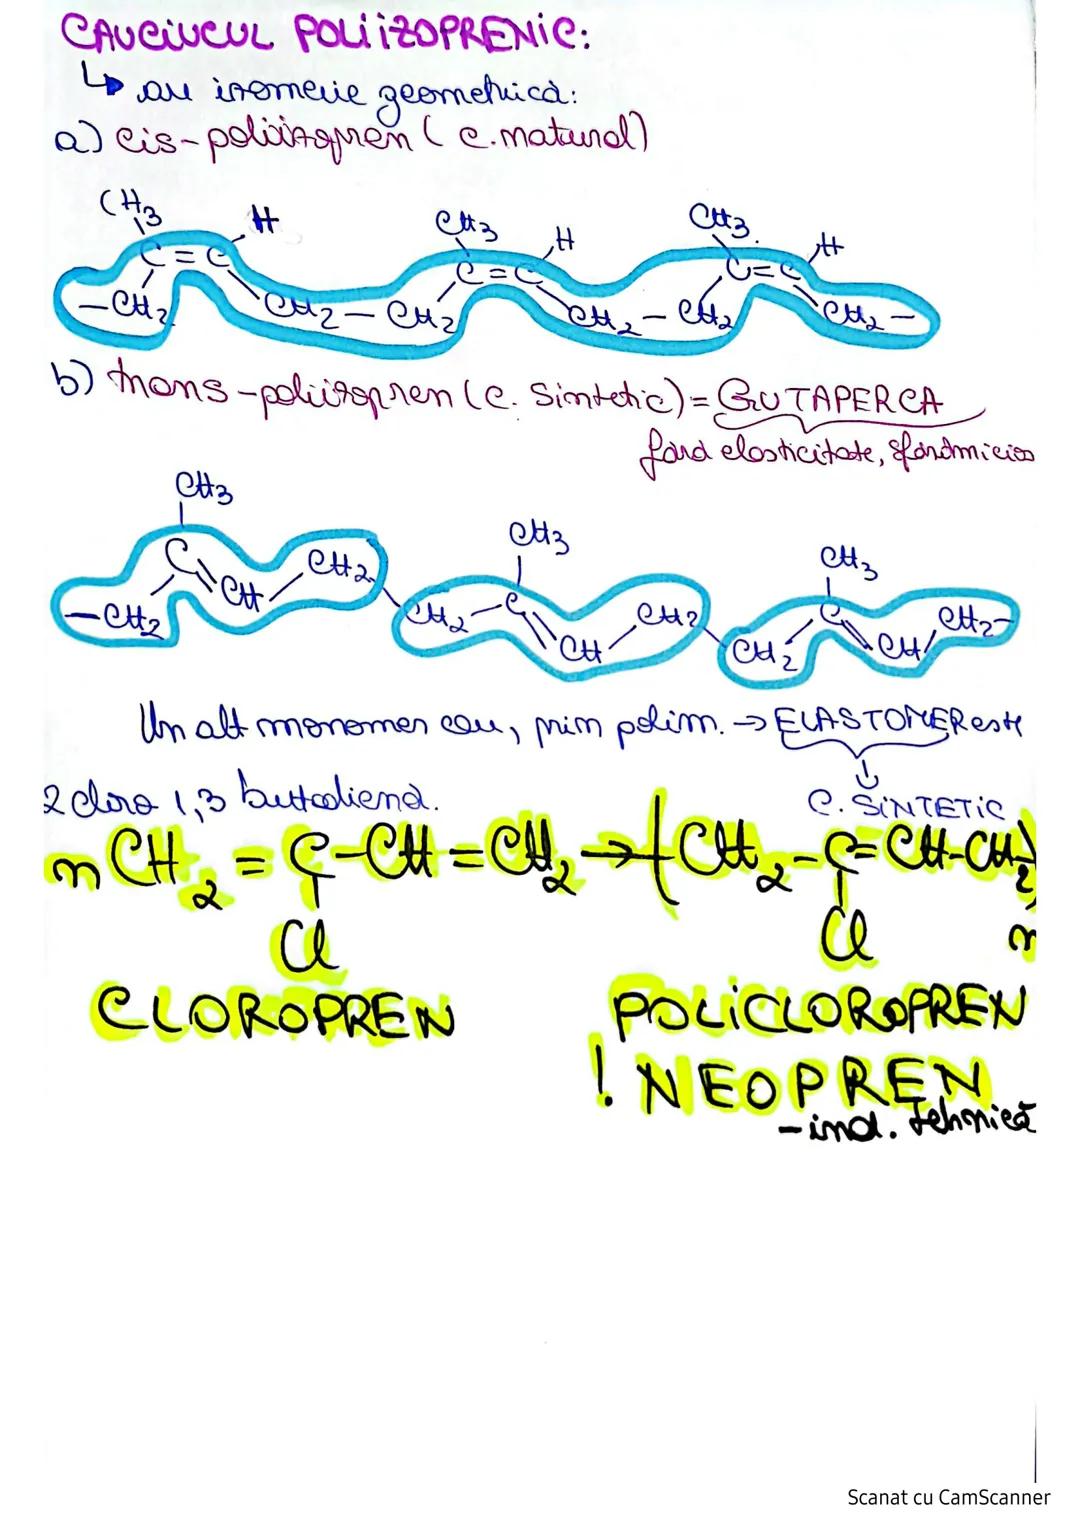 CAUCIUCUL POLIIZOPRENIC:
↳ au izomerie geometrică:
a) cis-poliizopren (c. natural)
CH3 H CH3 H CH3 H
C = C C = C C = C
-CH2 CH2 - CH2 CH2 - CH2 CH2 -
b) trans-poliizopren (c. Sintetic) = GUTAPERCA
fără elasticitate, sfărâmicios
CH3 CH3 CH3
C CH2 C CH2 C CH2-
-CH2 CH CH2 CH CH2 CH
Un alt monomer care, prin polim. → ELASTOMER este
2 cloro 1,3 butadiena.
C. SINTETIC
nCH2 = C-CH=CH2 → (CH2-C=CH-CH2)
Cl Cl n
CLOROPREN POLICLOROPREN
! NEOPREN
- ind. tehnică
Scanat cu CamScanner